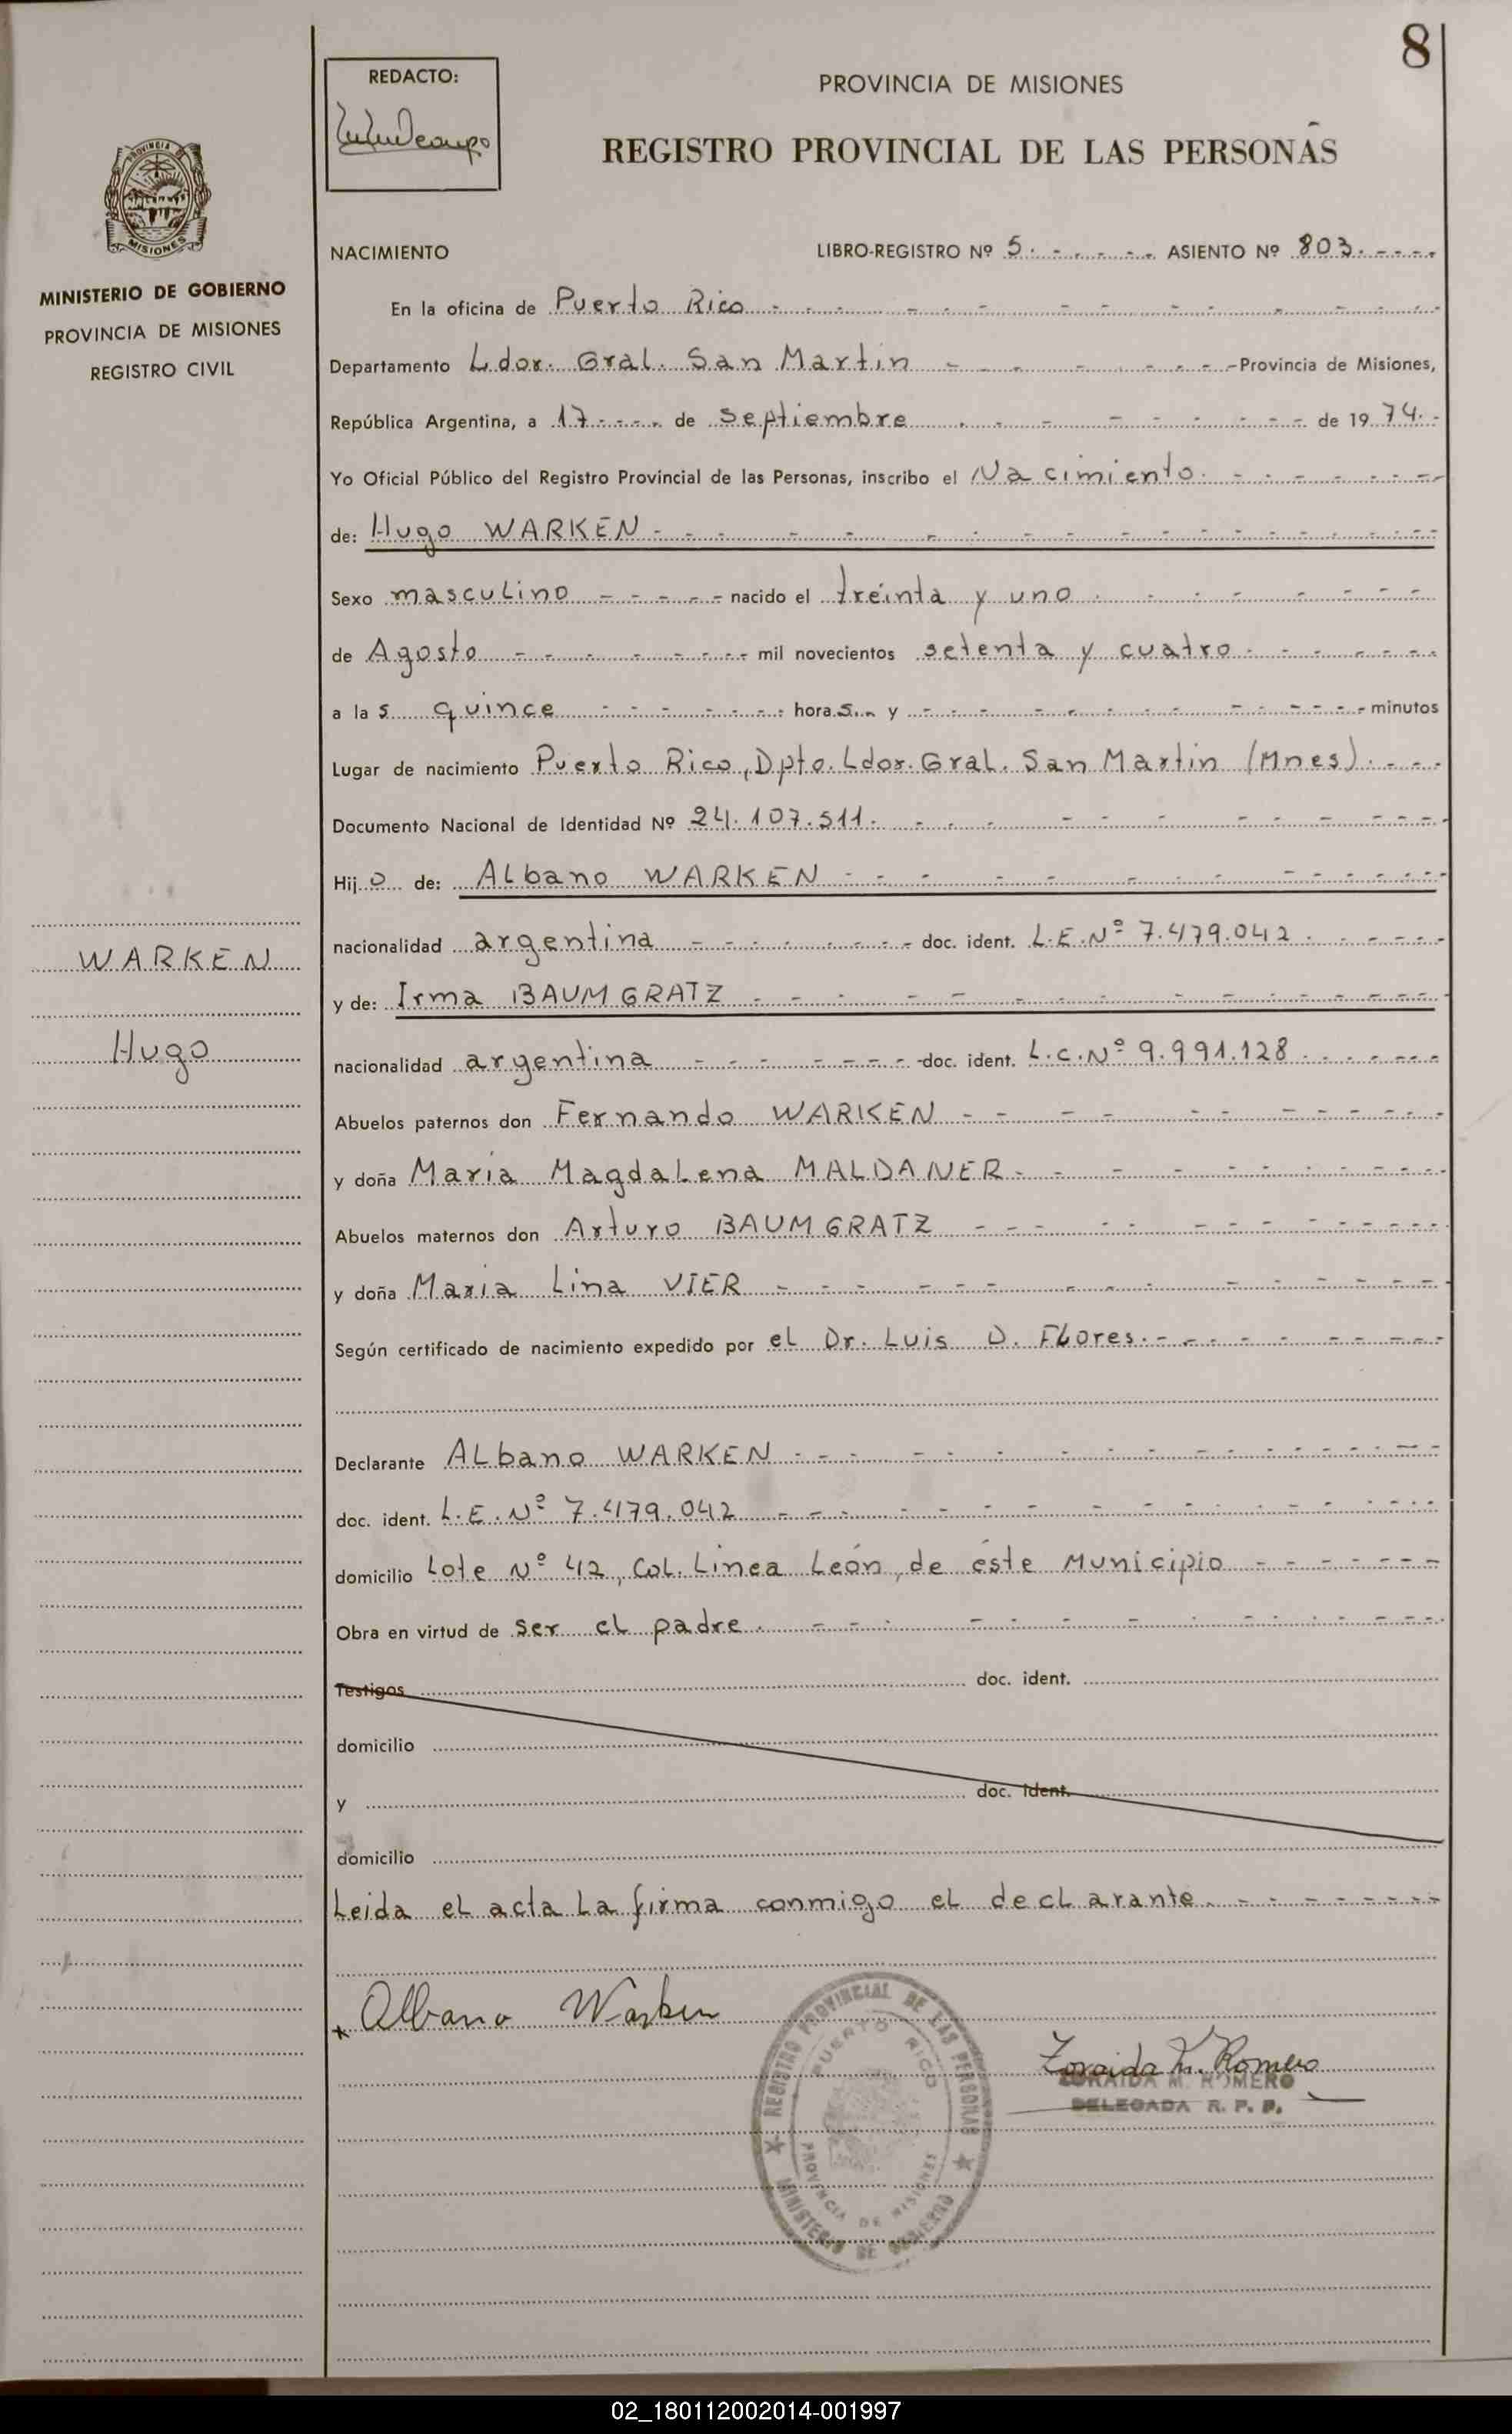 8
REDACTO:
PROVINCIA DE MISIONES
REGISTRO PROVINCIAL DE LAS PERSONAS
PROVINCIA
MISIONES
MINISTERIO DE GOBIERNO
PROVINCIA DE MISIONES
REGISTRO CIVIL
NACIMIENTO LIBRO-REGISTRO Nº 5. ASIENTO Nº 803.
En la oficina de Puerto Rico
Departamento Ldor. Gral. San Martin Provincia de Misiones,
República Argentina, a 17 de septiembre de 1974.
Yo Oficial Público del Registro Provincial de las Personas, inscribo el Nacimiento.
de: Hugo WARKEN
Sexo masculino nacido el treinta y uno
de Agosto mil novecientos setenta y cuatro
a las quince horas. y minutos
Lugar de nacimiento Puerto Rico, Dpto. Ldor. Gral. San Martin (Mnes).
Documento Nacional de Identidad Nº 24.107.511.
Hijo de: Albano WARKEN
nacionalidad argentina doc. ident. L.E.Nº 7.479.042
y de: Irma BAUMGRATZ
nacionalidad argentina doc. ident. L.C.Nº 9.991.128
Abuelos paternos don Fernando WARKEN
y doña Maria Magdalena MALDANER
Abuelos maternos don Arturo BAUMGRATZ
y doña Maria Lina VIER
Según certificado de nacimiento expedido por el Dr. Luis D. Flores.
Declarante Albano WARKEN
doc. ident. L.E.Nº 7.479.042
domicilio Lote Nº 42, Col. Linea León, de éste Municipio
Obra en virtud de ser el padre.
Testigos doc. ident.
domicilio
y doc. ident.
domicilio
Leida el acta la firma conmigo el declarante.
WARKEN
Hugo
Albano Warken
Zoraida M. Romero
ZORAIDA M. ROMERO
DELEGADA R. P. P.
REGISTRO PROVINCIAL DE LAS PERSONAS
PUERTO RICO
PROVINCIA DE MISIONES
MINISTERIO DE GOBIERNO
02_180112002014-001997